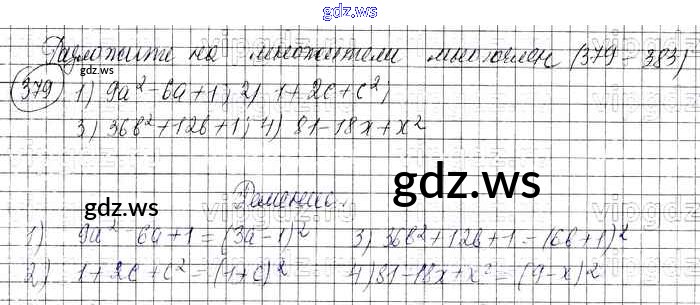 gdz.ws
Разложите на множители многочлен (379 - 383)
gdz.ws
379 1) 9a² - 6a + 1; 2) 1 + 2c + c²;
3) 36b² + 12b + 1; 4) 81 - 18x + x²
gdz.ws
gdz.ws
Решение.
1) 9a² - 6a + 1 = (3a - 1)² 3) 36b² + 12b + 1 = (6b + 1)²
2) 1 + 2c + c² = (1 + c)² 4) 81 - 18x + x² = (9 - x)²
gdz.ws